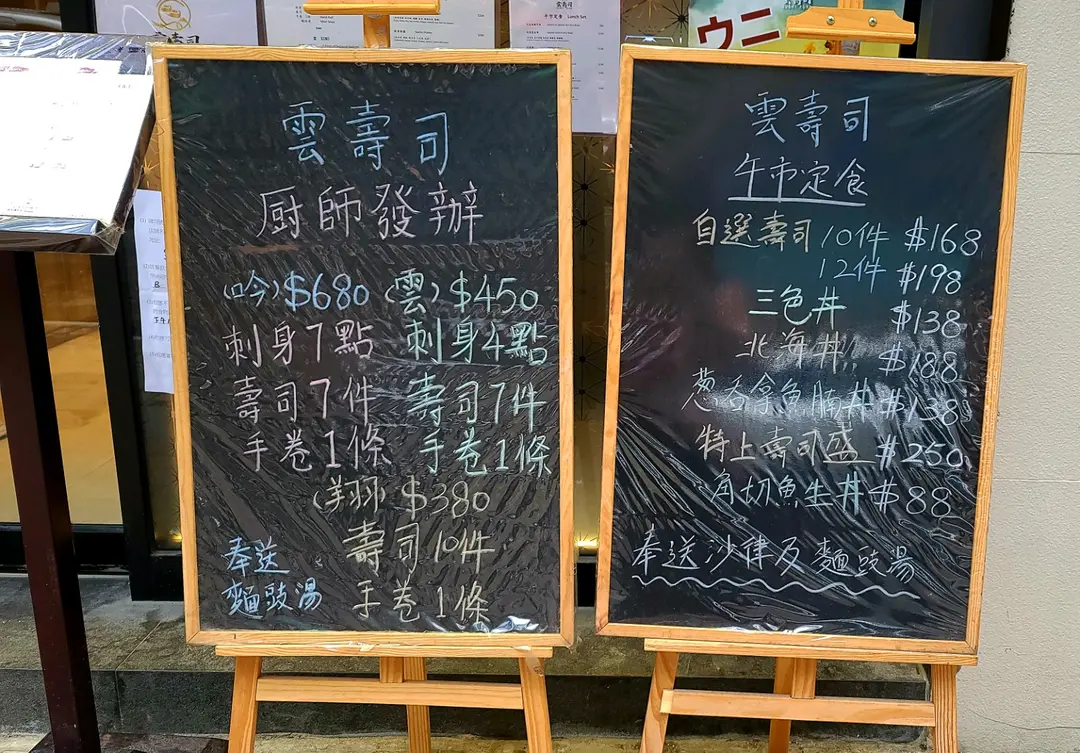 雲壽司
厨師發辦
(吟) $680 (雲) $450
刺身7點 刺身4點
壽司7件 壽司7件
手卷1條 手卷1條
(翔) $380
壽司10件
手卷1條
奉送
麵豉湯
ウニ
雲壽司
午市定食
自選壽司 10件 $168
12件 $198
三色丼 $138
北海丼 $188
葱吞拿魚腩丼 $138
特上壽司盛 $250
角切魚生丼 $88
奉送沙律及麵豉湯